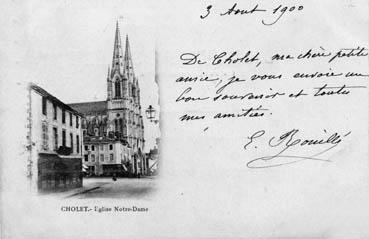 3 Aout 1900
De Cholet, ma chère petite
amie, je vous envoie un
bon souvenir et toutes
mes amitiés.
E. Rouillé
CHOLET.- Eglise Notre-Dame